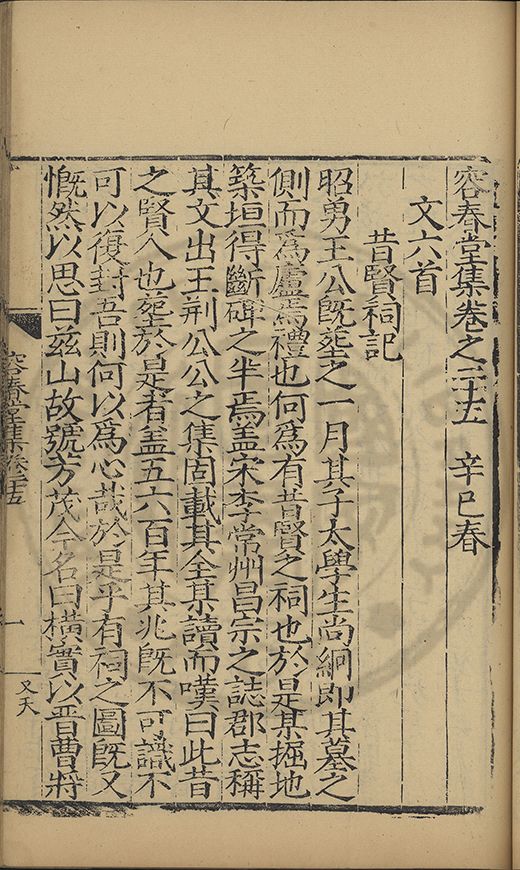 容春堂集卷之二十五　辛巳春
文六首
昔賢祠記
昭勇王公旣塟之一月其子太學生尚絅即其墓之
側而爲廬焉禮也何爲有昔賢之祠也於是某掘地
築垣得斷碑之半焉盖宋李常州昌宗之誌郡志稱
其文出王荆公公之集固載其全某讀而嘆曰此昔
之賢人也塟於是者盖五六百年其兆旣不可識不
可以復封吾則何以爲心哉於是乎有祠之圖旣又
慨然以思曰兹山故號芳茂今名曰橫實以晋曹將
容春堂集卷二十五
一
又天